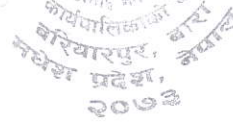 कार्यपालिकाको
बरियारपुर, बारा
मधेश प्रदेश, नेपाल
२०७३